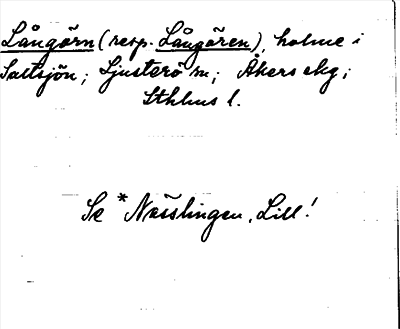 Långörn (resp. Långören), holme i
Saltsjön; Ljusterö sn; Åkers skg;
Sthlms l.
Se *Nässlingen, Lill!